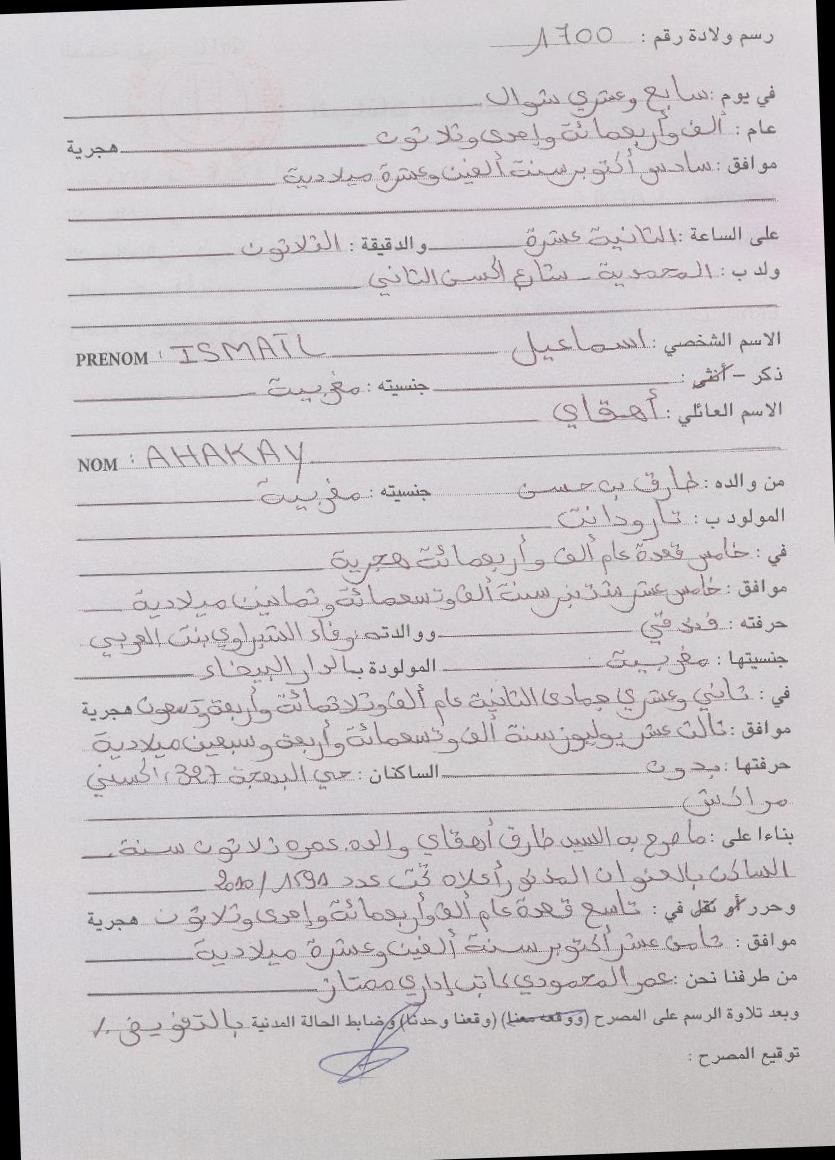 رسم ولادة رقم : 1700
في يوم : سابع وعشري شوال
عام : ألف وأربعمائة وإحدى وثلاثون هجرية
موافق : سادس أكتوبر سنة ألفين وعشرة ميلادية
على الساعة : الثانية عشرة والدقيقة : الثلاثون
ولد ب : المحمدية - شارع الحسن الثاني
الاسم الشخصي : اسماعيل PRENOM : ISMAIL
ذكر – أنثى : جنسيته : مغربية
الاسم العائلي : أهقاي
NOM : AHAKAY
من والده : طارق بن حسن جنسيته : مغربية
المولود ب : تارودانت
في : خامس قعدة عام ألف وأربعمائة هجرية
موافق : خامس عشر شتنبر سنة ألف وتسعمائة وثمانين ميلادية
حرفته : فندقي ووالدته وفاء الشبراوي بنت العربي
جنسيتها : مغربية المولودة بالدار البيضاء
في : ثاني وعشري جمادى الثانية عام ألف وثلاثمائة وأربعة وتسعون هجرية
موافق : ثالث عشر يوليوز سنة ألف وتسعمائة وأربعة وسبعين ميلادية
حرفتها : بدون الساكنان : حي البهجة 327، الحسني
مراكش
بناءا على : ما صرح به السيد طارق أهقاي والده عمره ثلاثون سنة
الساكن بالعنوان المذكور أعلاه تحت عدد 1591/2010
وحرر أو نقل في : تاسع قعدة عام ألف وأربعمائة وإحدى وثلاثون هجرية
موافق : ثامن عشر أكتوبر سنة ألفين وعشرة ميلادية
من طرفنا نحن : عمر المحمودي كاتب إداري ممتاز
وبعد تلاوة الرسم على المصرح (ووقعه معنا) (وقعنا وحدنا) وضابط الحالة المدنية بالتفويض ./.
توقيع المصرح :